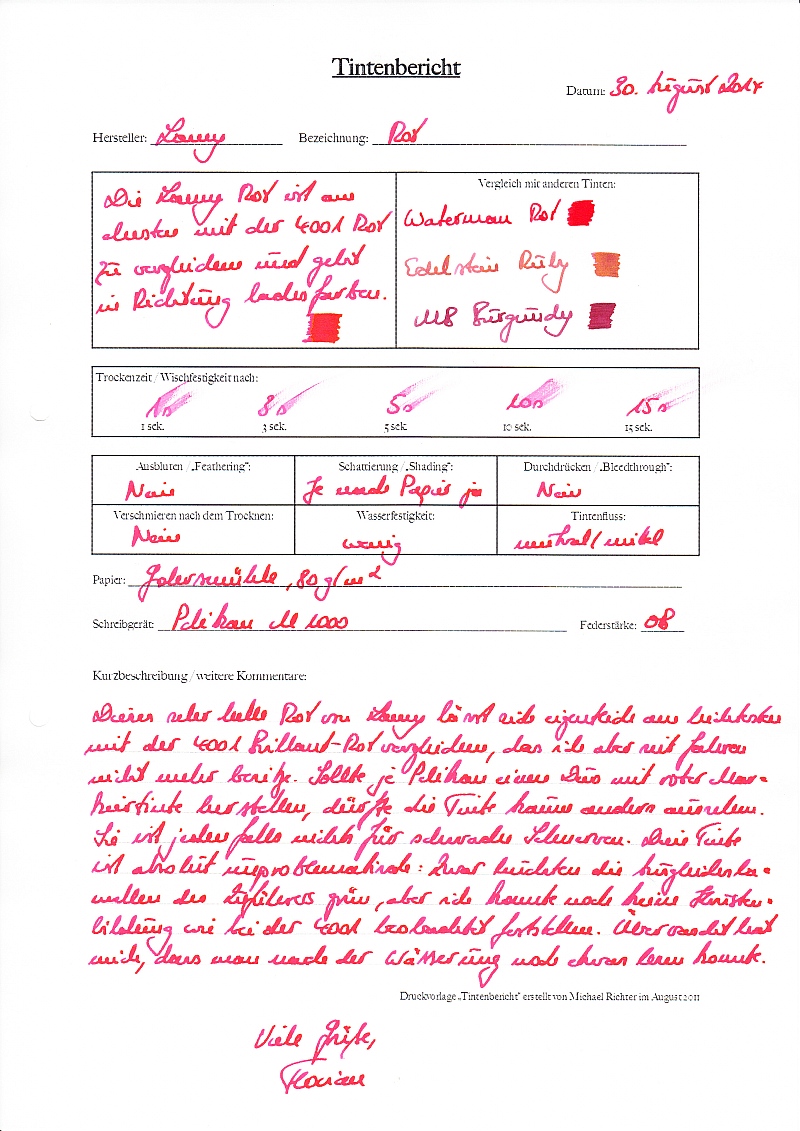 Tintenbericht
Datum: 30. August 2014
Hersteller: Lamy Bezeichnung: Rot
Die Lamy Rot ist am
ehesten mit der 4001 Rot
zu vergleichen und geht
in Richtung lachsfarben.
Vergleich mit anderen Tinten:
Waterman Rot
Edelstein Ruby
MB Burgundy
Trockenzeit / Wischfestigkeit nach:
1s 3s 5s 10s 15s
1 sek. 3 sek. 5 sek. 10 sek. 15 sek.
Ausbluten / „Feathering": Schattierung / „Shading": Durchdrücken / „Bleedthrough":
Nein Je nach Papier ja Nein
Verschmieren nach dem Trocknen: Wasserfestigkeit: Tintenfluss:
Nein wenig neutral / mittel
Papier: , 80 g/m²
Schreibgerät: Pelikan M 1000 Federstärke: OB
Kurzbeschreibung / weitere Kommentare:
Dieses sehr helle Rot von Lamy lässt sich eigentlich am leichtesten
mit der 4001 Brillant-Rot vergleichen, das ich aber seit Jahren
nicht mehr besitze. Sollte je Pelikan einen Duo mit roter Mar-
kertinte herstellen, dürfte die Tinte kaum anders aussehen.
Sie ist jedenfalls nichts für schwache Nerven. Die Tinte
ist absolut unproblematisch: Zwar leuchten die
des grün, aber ich konnte noch keine Krusten-
bildung wie bei der 4001 beobachtet feststellen. Überrascht hat
mich, dass man nach der Wässerung noch etwas lesen konnte.
Druckvorlage „Tintenbericht" erstellt von Michael Richter im August 2011
Viele Grüße,
Florian